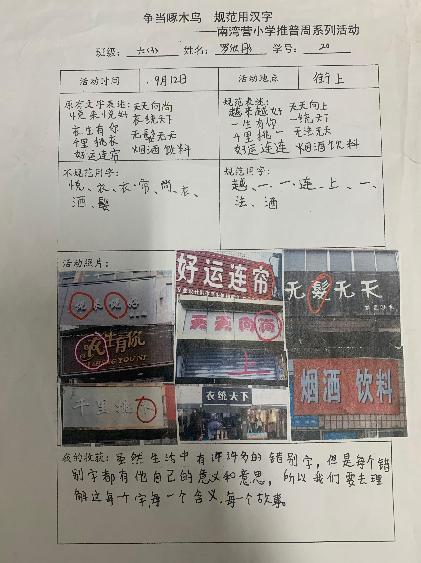 争当啄木鸟 规范用汉字
——南湾营小学推普周系列活动
班级: 六(3) 姓名: 学号: 20
活动时间 9月12日 活动地点 街上
原有文字表述: 天天向尚
悦来悦好 衣统天下
衣生有你 无髮无天
千里挑衣 烟酒饮料
好运连帘
规范表述: 天天向上
越来越好 一统天下
一生有你 无法无天
千里挑一
好运连连 烟酒饮料
不规范用字:
悦、衣、衣、帘、尚、衣、
酒、髮
规范用字:
越、一、一、连、上、一、
法、酒
活动照片:
好运连帘
无髮无天
天天向尚
衣生有你
千里挑衣
衣统天下
烟酒 饮料
我的收获: 虽然生活中有许许多多的错别字,但是每个错
别字都有他自己的意义和意思,所以我们要去理
解这每个字,每一个含义,每个故事。